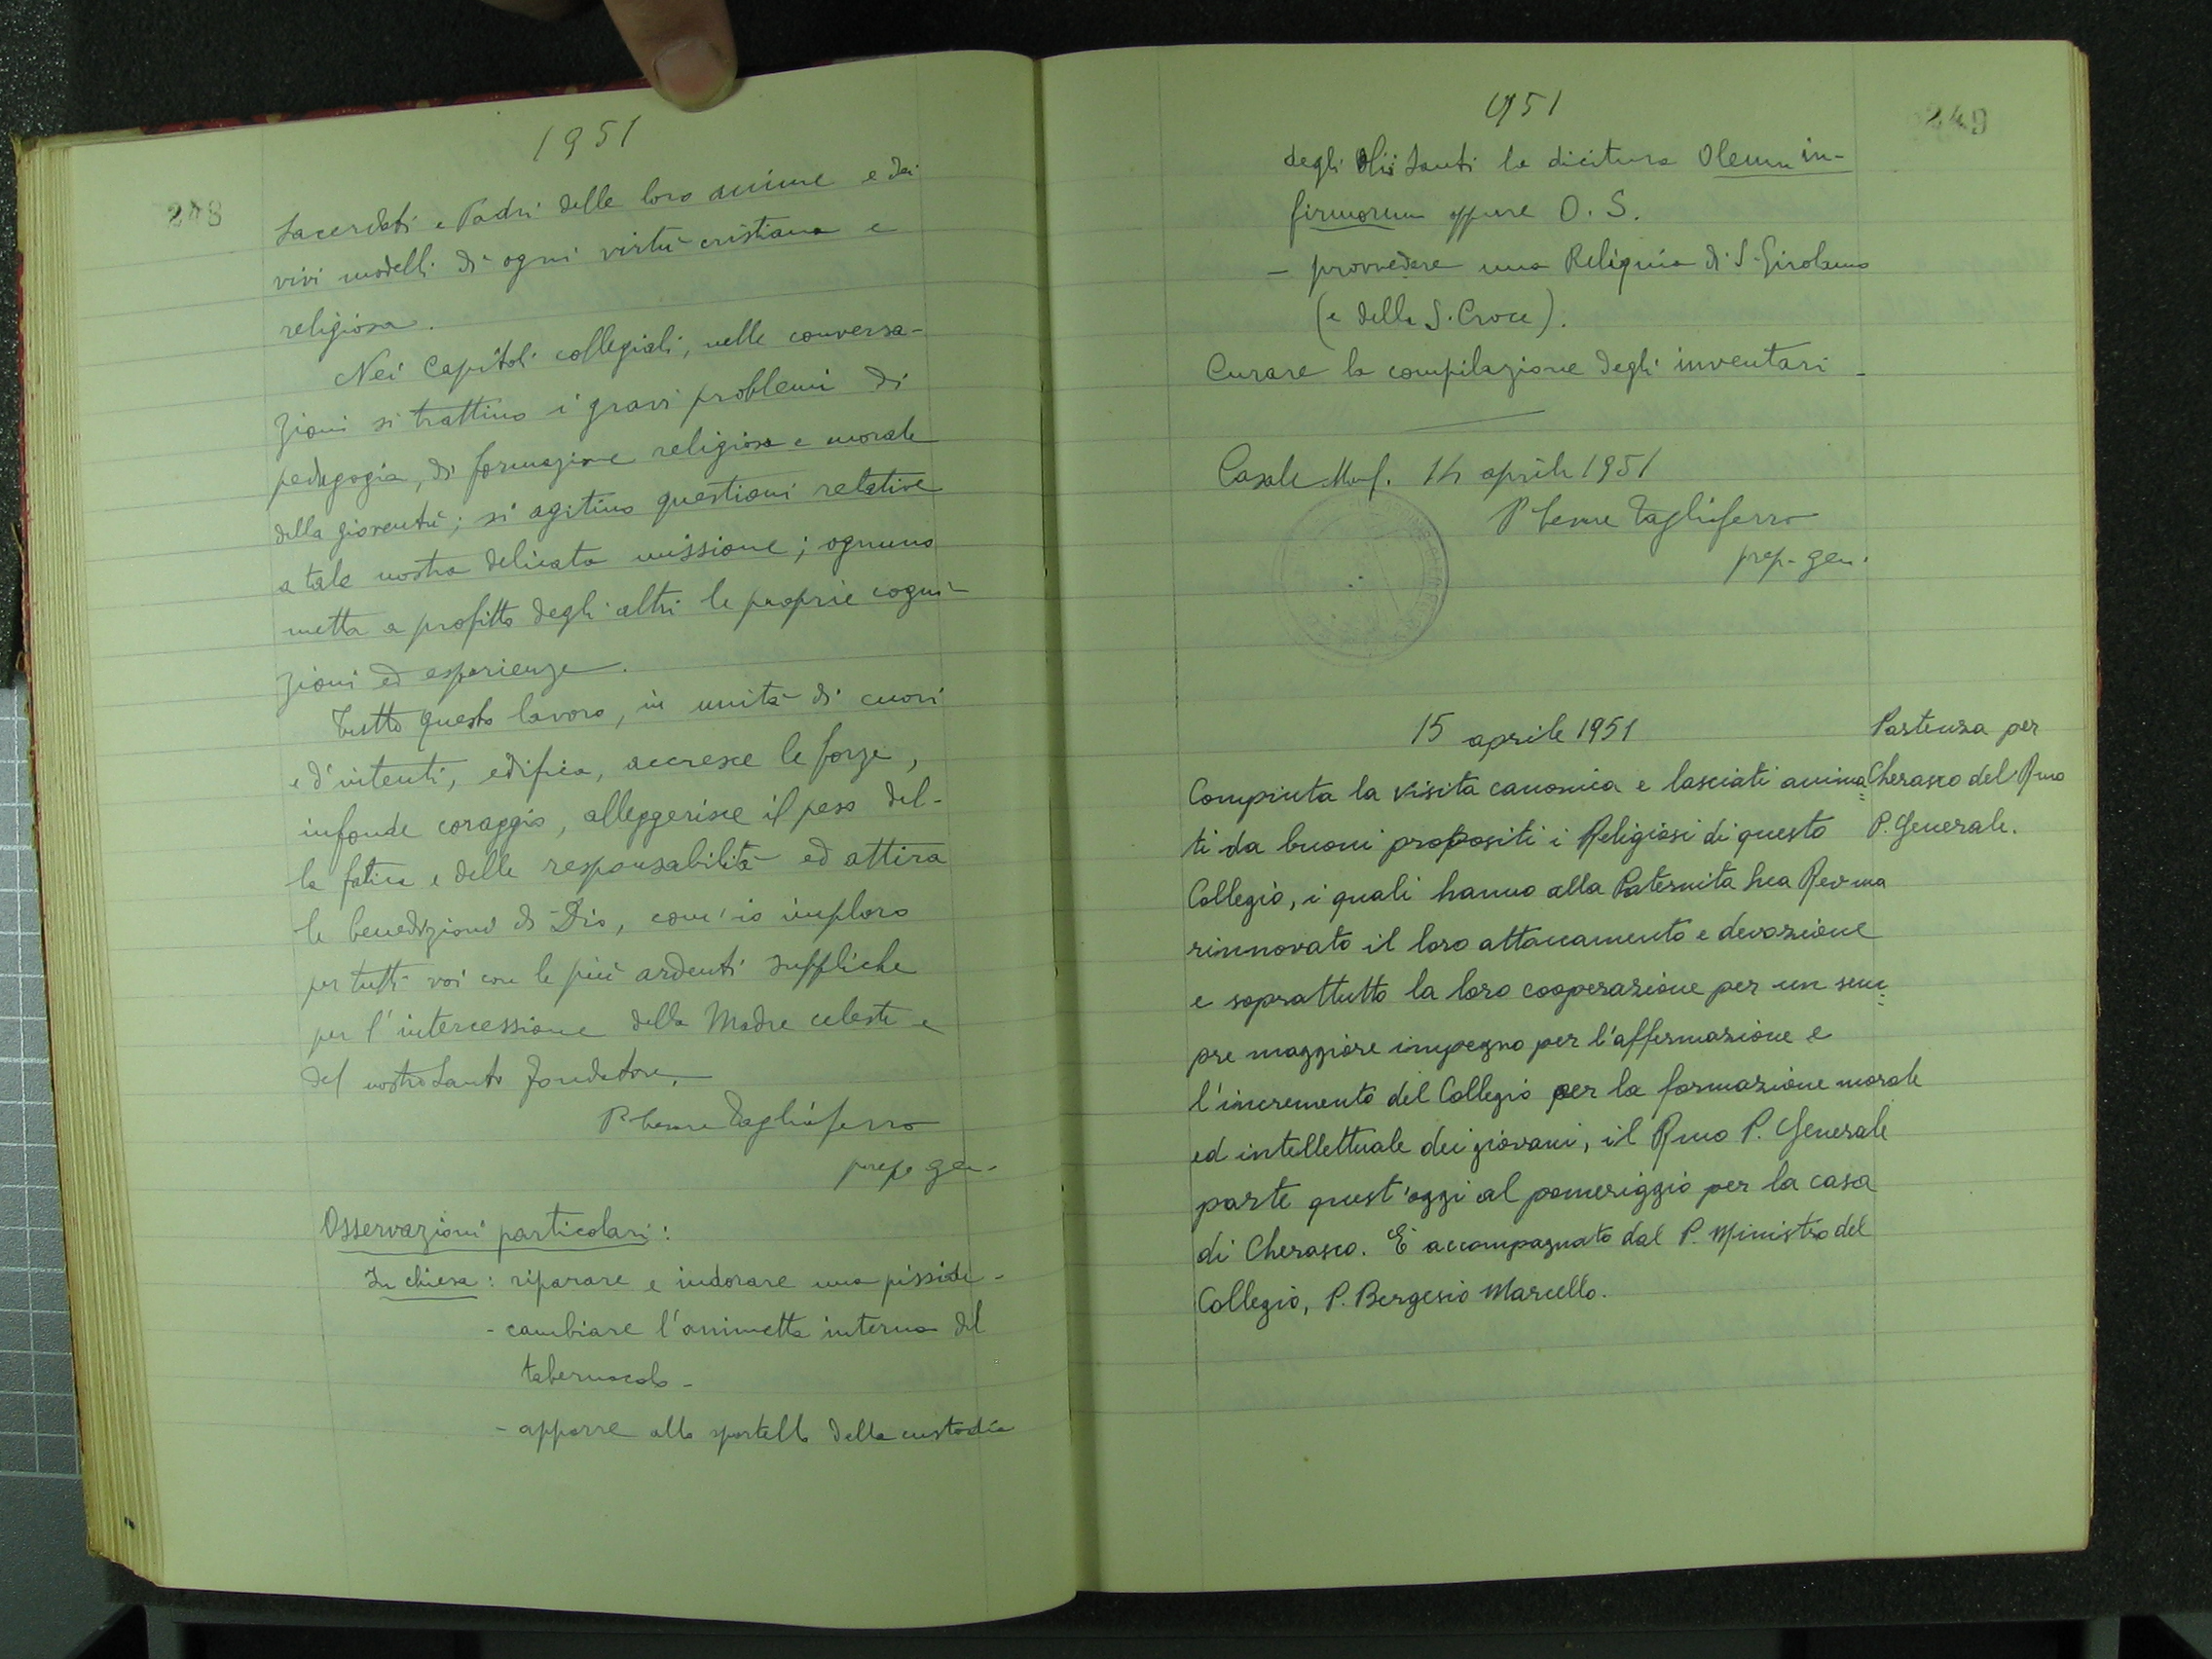 1951
248
Sacerdoti e Padri delle loro anime e dei
vivi modelli di ogni virtù cristiana e
religiosa.
Nei Capitoli collegiali, nelle conversa-
zioni si trattino i gravi problemi di
pedagogia, di formazione religiosa e morale
della gioventù; si agitino questioni relative
a tale nostra delicata missione; ognuno
metta a profitto degli altri le proprie cogni-
zioni ed esperienze.
Tutto questo lavoro, in unità di cuori
e d'intenti, edifica, accresce le forze,
infonde coraggio, alleggerisce il peso del-
la fatica e delle responsabilità ed attira
le benedizioni di Dio, com'io imploro
per tutti voi con le più ardenti suppliche
per l'intercessione della Madre celeste e
del nostro Santo Fondatore.
P. Cesare Tagliaferro
prep. gen.
Osservazioni particolari:
In chiesa: riparare e indorare una pisside -
- cambiare l'animetta interna del
tabernacolo -
- apporre allo sportello della custodia
1951
249
degli Olii Santi la dicitura Oleum in-
firmorum oppure O. S.
- provvedere una Reliquia di S. Girolamo
(e della S. Croce).
Curare la compilazione degli inventari -
Casale Monf. 14 aprile 1951
P. Cesare Tagliaferro
prep. gen.
15 aprile 1951
Partenza per
Cherasco del Rmo
P. Generale.
Compiuta la visita canonica e lasciati anima=
ti da buoni propositi i Religiosi di questo
Collegio, i quali hanno alla Paternità Sua Rev.ma
rinnovato il loro attaccamento e devozione
e soprattutto la loro cooperazione per un sem=
pre maggiore impegno per l'affermazione e
l'incremento del Collegio per la formazione morale
ed intellettuale dei giovani, il Rmo P. Generale
parte quest'oggi al pomeriggio per la casa
di Cherasco. È accompagnato dal P. Ministro del
Collegio, P. Bergesio Marcello.